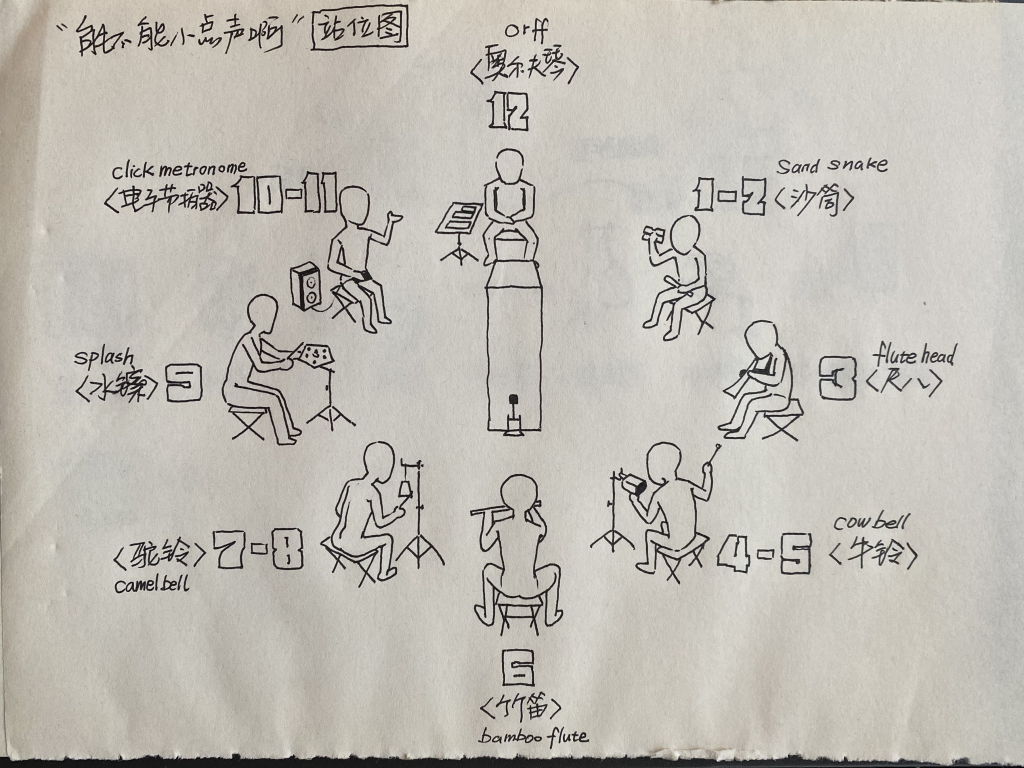 “能不能小点声啊” 站位图
orff
〈奥尔夫琴〉
12
click metronome
〈电子节拍器〉10-11
Sand snake
1-2〈沙筒〉
splash
〈水镲〉9
flute head
3〈尺八〉
〈驼铃〉7-8
camel bell
cow bell
4-5〈牛铃〉
6
〈竹笛〉
bamboo flute